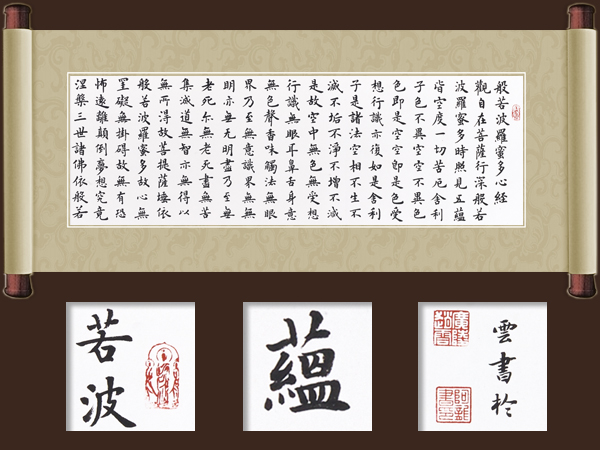 般若波羅蜜多心經
觀自在菩薩行深般若
波羅蜜多時照見五蘊
皆空度一切苦厄舍利
子色不異空空不異色
色即是空空即是色受
想行識亦復如是舍利
子是諸法空相不生不
滅不垢不淨不增不減
是故空中無色無受想
行識無眼耳鼻舌身意
無色聲香味觸法無眼
界乃至無意識界無無
明亦無无明盡乃至無
老死亦無老死盡無苦
集滅道無智亦無得以
無所得故菩提薩埵依
般若波羅蜜多故心無
罣礙無掛礙故無有恐
怖遠離顛倒夢想究竟
涅槃三世諸佛依般若
若波
蘊
雲書於